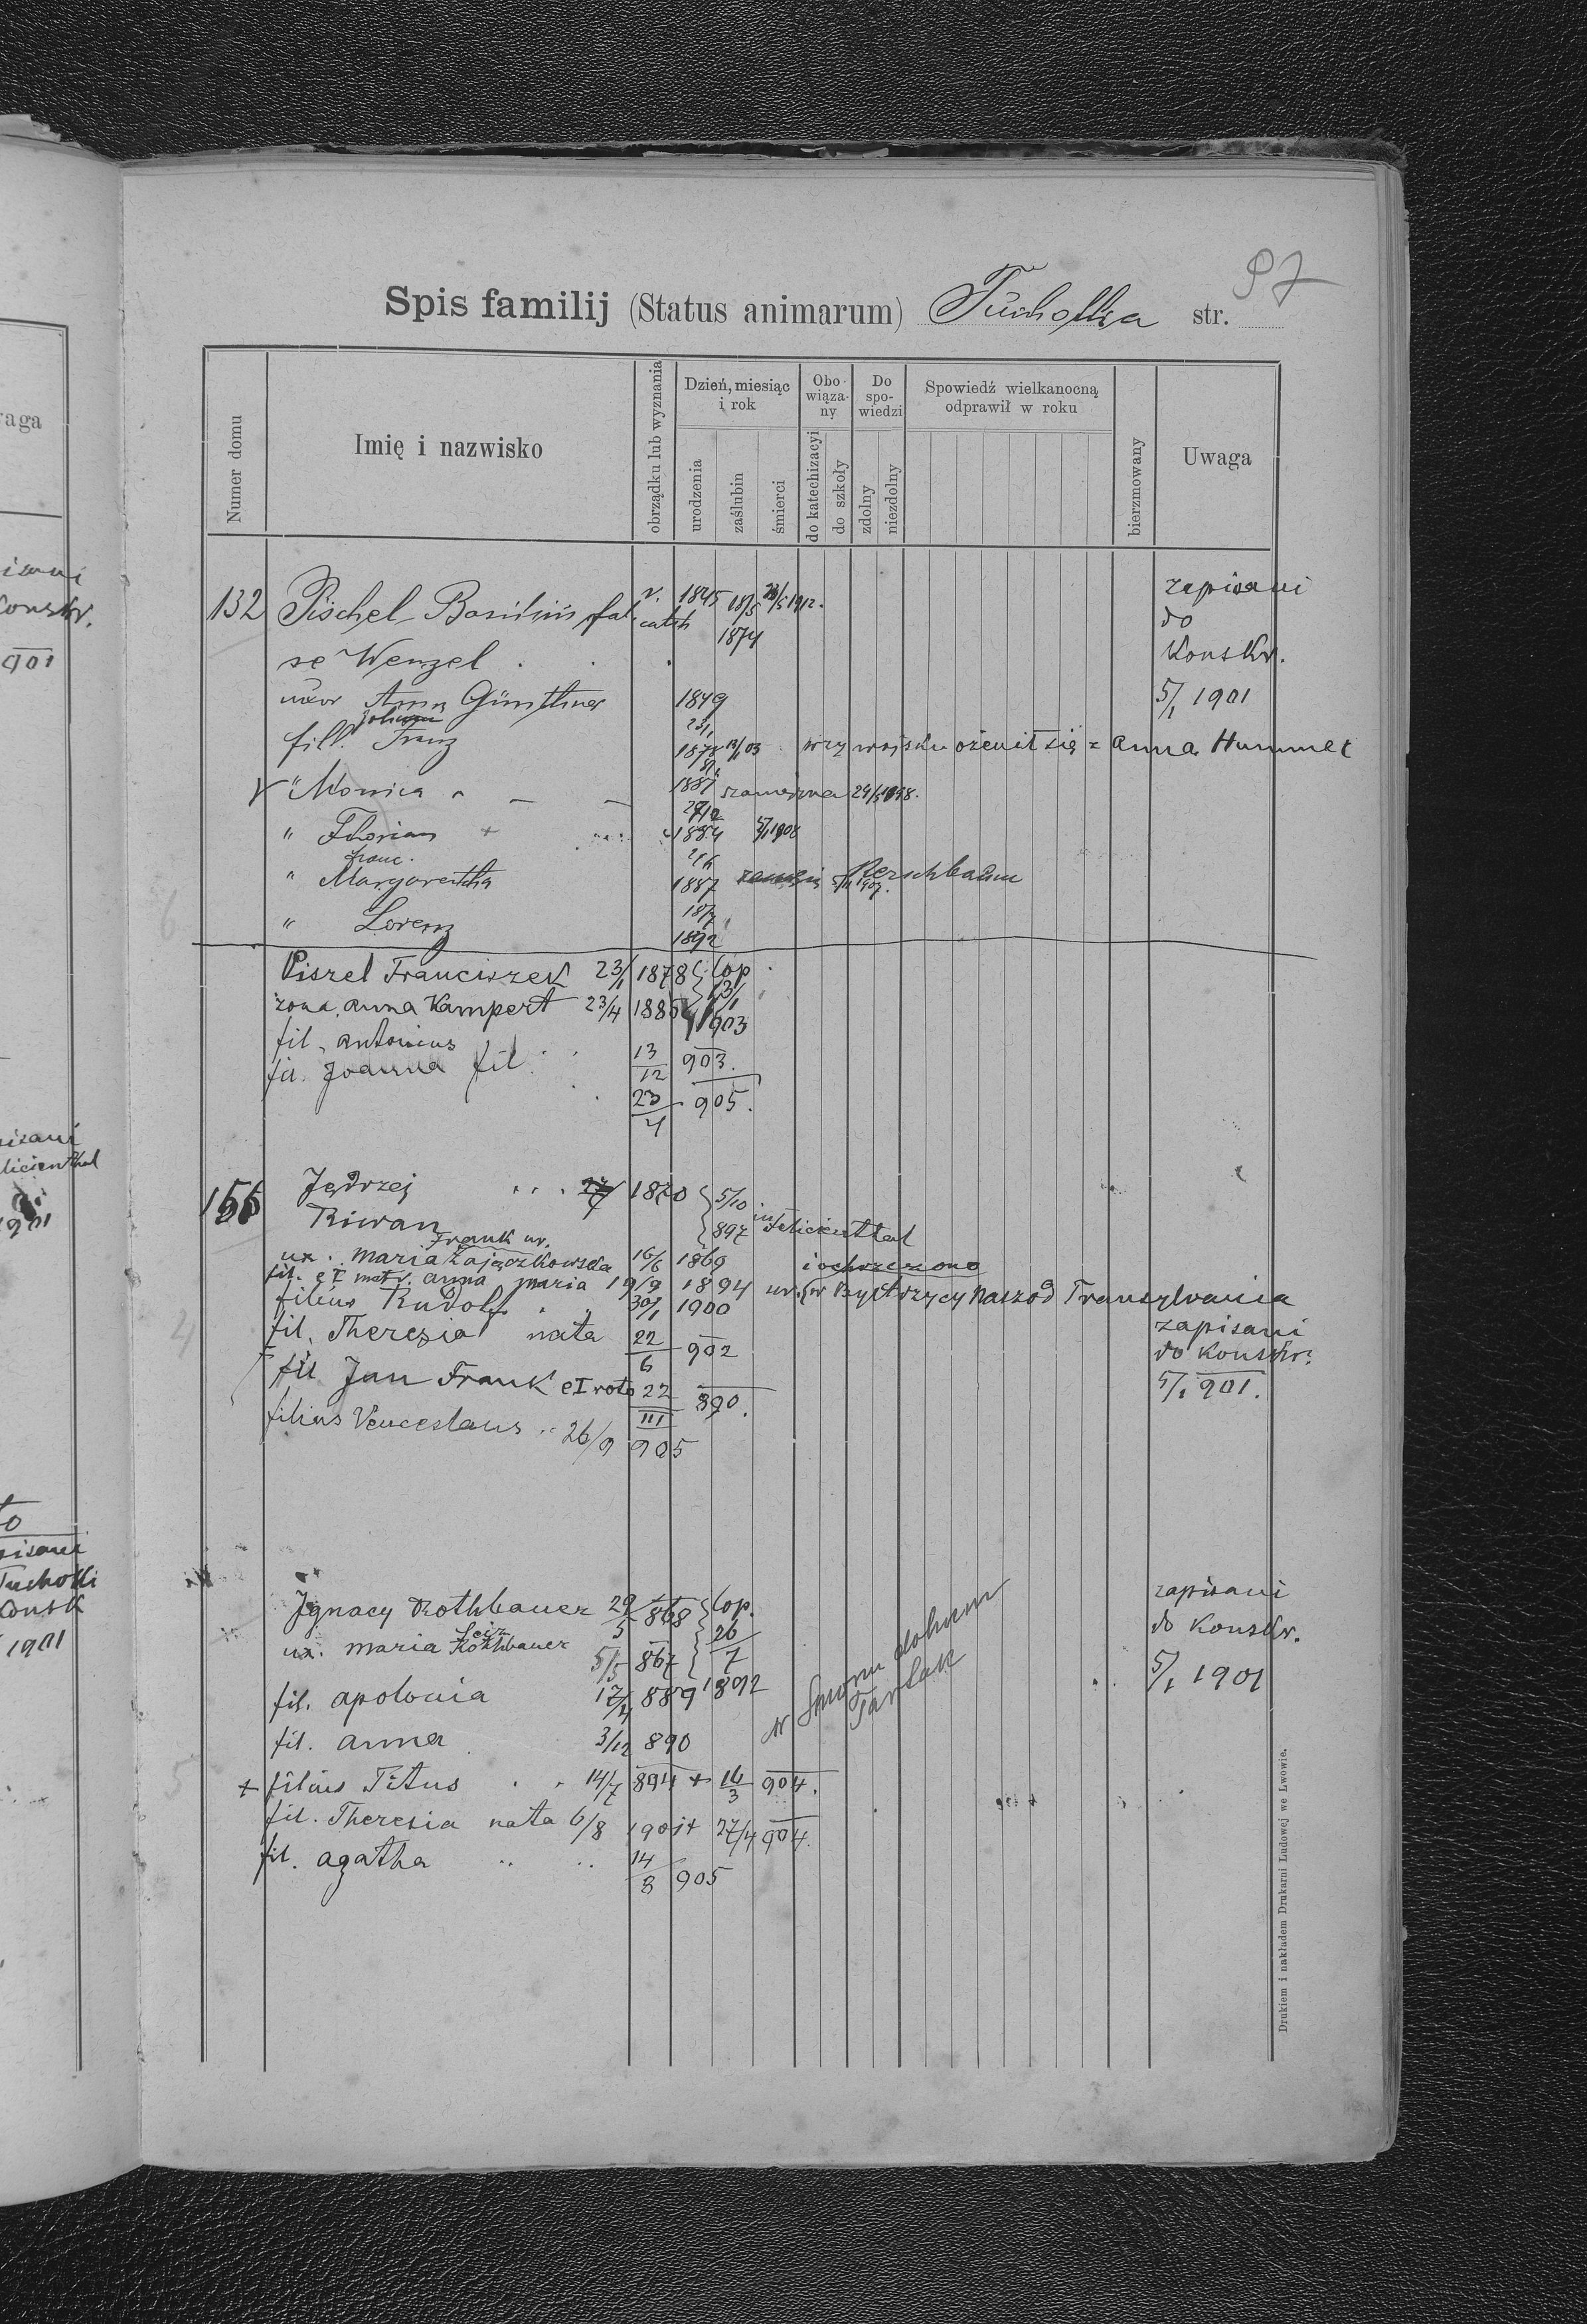 97
Spis familij (Status animarum) Tucholka str.
Numer domu
Imię i nazwisko
obrządku lub wyznania
Dzień, miesiąc i rok
urodzenia
zaślubin
śmierci
Obowiąza-ny
do katechizacyi
do szkoły
Do spo-wiedzi
zdolny
niezdolny
Spowiedź wielkanocną odprawił w roku
bierzmowany
Uwaga
132 Pischel Basilius fal r. cath 1845 18/5 1874 1912.
se Wenzel
zapisani
do
Konskr.
5/1 1901
uxor Anna Günthner 1849
fill. Franz 23/1 1878 03 przy wojsku ożenił się z Anna Hummel
" Monica 1881 29/5 1898.
" Florian + 1884 5/1 1908
franc.
" Margaretha 1887 Perschbaum 1907.
" Lorenz 18/7 1892
Piszel Franciszek 23/1 1878 cop.
żona, Anna Kampert 23/4 188 13/1 903
fil. Antonius 13/12 903.
fil. Joanna fil 23/4 905.
Jędrzej 1870 5/10
Riwan 897 in Felicienthal
Frank ur.
ux. Maria Zajączkowska 16/6 1869 i ochrzczono
fil. e I matr. Anna Maria 19/9 1894 ur. (w Bystrzycy Naszod Transylvania
filius Rudolf 30/1 1900
fil. Theresia nata 22/6 902
zapisani
do konskr.
5/1 901.
fil Jan Frank e I voto 22/III 890.
filius Venceslaus 26/9 905
Ignacy Rothbauer 29/5 868 cop.
ux. Maria Rothbauer 5/5 867 26/7 1892
zapisani
do Konskr.
5/1 1901
fil. Apolonia 889
w Smorzu dolnem
Tartak
fil. Anna 3/12 890
+ filius Titus 14/7 894 + 16/3 904.
fil. Theresia nata 6/8 1901 + 27/4 904.
fil. Agatha 14/8 905
Drukiem i nakładem Drukarni Ludowej we Lwowie.
aga
901
1901
1901